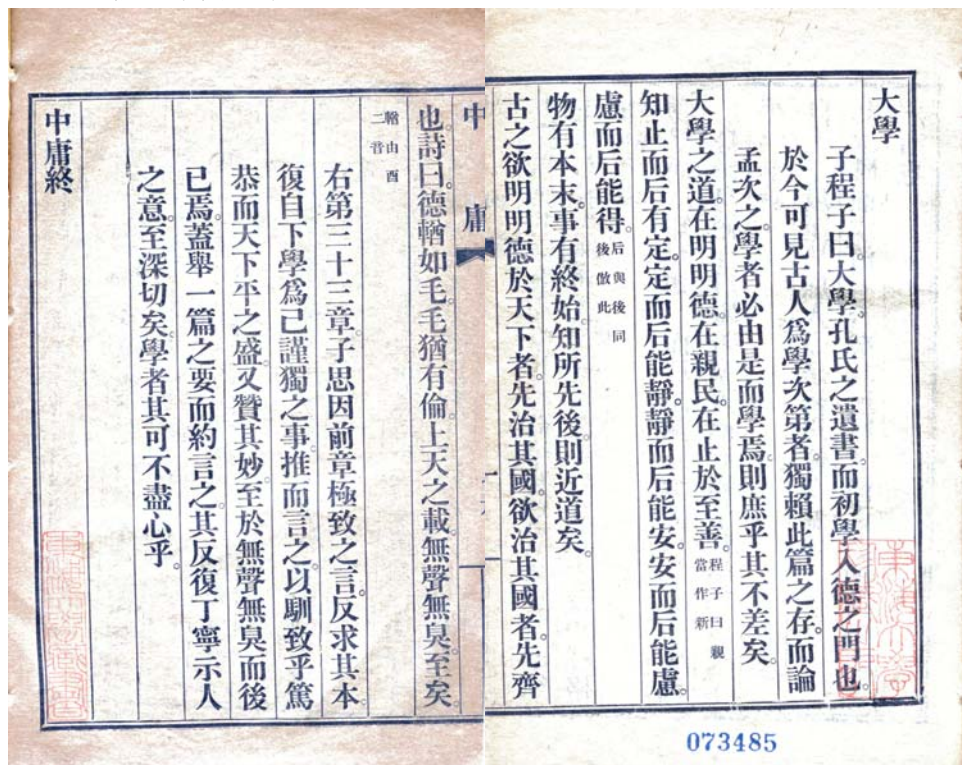 大學
子程子曰。大學。孔氏之遺書。而初學入德之門也。
於今可見古人爲學次第者。獨賴此篇之存。而論
孟次之。學者必由是而學焉。則庶乎其不差矣。
大學之道。在明明德。在親民。在止於至善。程子曰親當作新
知止而后有定。定而后能靜。靜而后能安。安而后能慮。
慮而后能得。后與後同後倣此
物有本末。事有終始。知所先後。則近道矣。
古之欲明明德於天下者。先治其國。欲治其國者。先齊
中庸
也。詩曰。德輶如毛。毛猶有倫。上天之載。無聲無臭。至矣。
輶由酉二音
右第三十三章。子思因前章極致之言。反求其本。
復自下學爲己謹獨之事。推而言之。以馴致乎篤
恭而天下平之盛。又贊其妙。至於無聲無臭而後
已焉。蓋舉一篇之要而約言之。其反復丁寧示人
之意。至深切矣。學者其可不盡心乎。
中庸終
073485